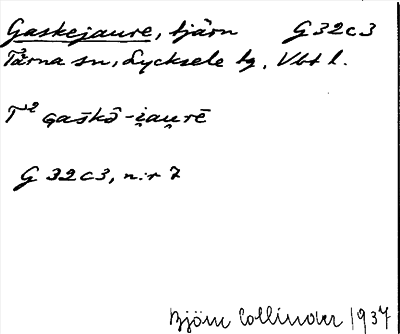 Gaskejaure, tjärn G 32 c 3
Tärna sn, Lycksele lg, Vbt l.
T² gaskō-i̯au̯rē
G 32 c 3, n:r 7
Björn Collinder 1937